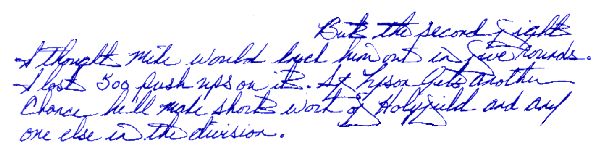 But the second fight
I thought Mike would knock him out in five rounds.
I lost 500 push ups on it. If Tyson gets another
Chance he'll make short work of Holyfield and any
one else in the division.